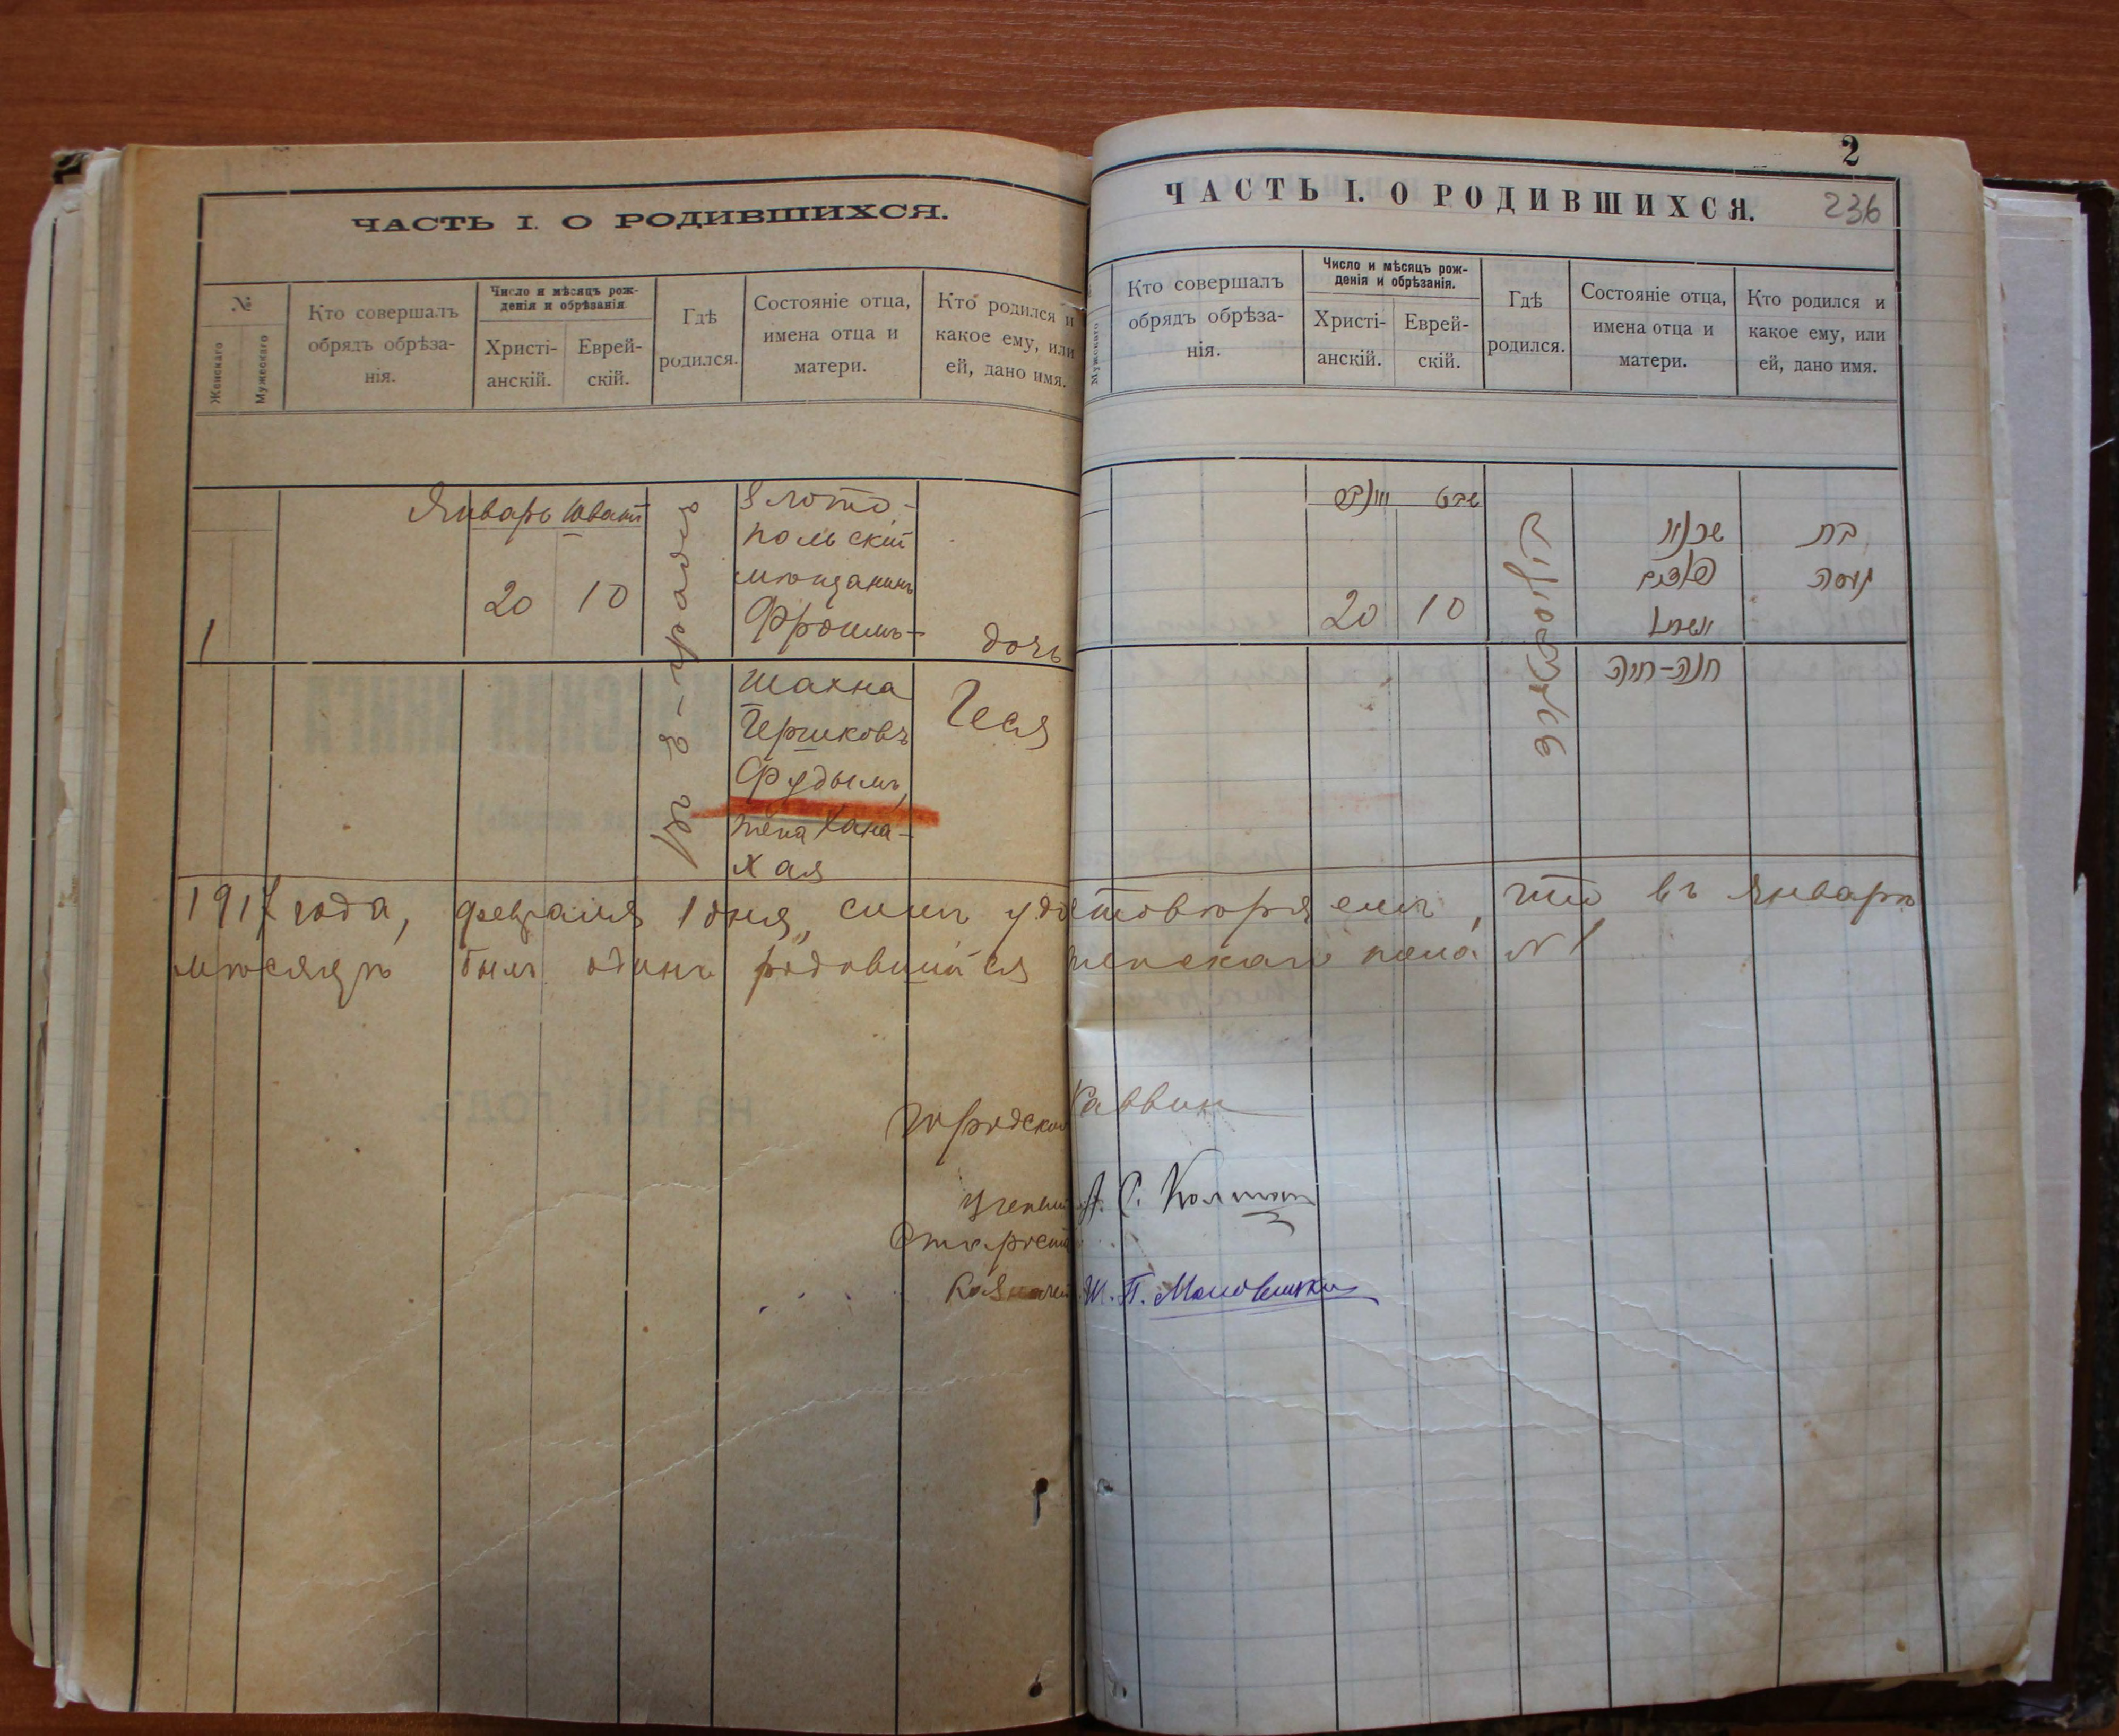 ЧАСТЬ I. О РОДИВШИХСЯ.
№
Женскаго
Мужескаго
Кто совершалъ
обрядъ обрѣза-
нія.
Число и мѣсяцъ рож-
денія и обрѣзанія
Христі-
анскій.
Еврей-
скій.
Гдѣ
родился.
Состояніе отца,
имена отца и
матери.
Кто родился и
какое ему, или
ей, дано имя.
Январь Шватъ
1
20 10
Злато-
польскій
мѣщанинъ
Фроимъ-
Шахна
Гершковъ
Фудымъ,
жена Хана-
Хая
дочь
Геся
1917 года, февраля 1 дня, симъ удостовѣряемъ, что въ январѣ
мѣсяцѣ былъ одинъ родовшійся женскаго пола № 1
Городской Раввин
Ученый
Староста
Казначей
2
ЧАСТЬ I. О РОДИВШИХСЯ.
236
Мужскаго
Кто совершалъ
обрядъ обрѣза-
нія.
Число и мѣсяцъ рож-
денія и обрѣзанія.
Христі-
анскій.
Еврей-
скій.
Гдѣ
родился.
Состояніе отца,
имена отца и
матери.
Кто родился и
какое ему, или
ей, дано имя.
שבט
20 10
בת
חנה-חיה